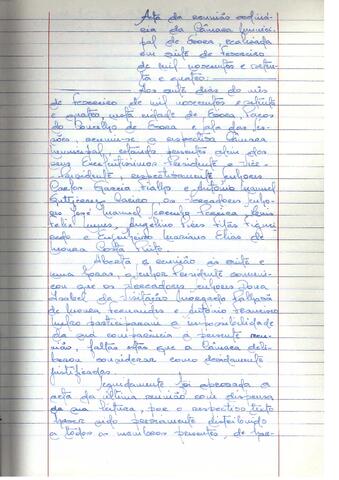 Acta da reunião ordiná-
ria da Câmara Munici-
pal de Évora, realizada
em sete de Fevereiro
de mil novecentos e seten-
ta e quatro:
Aos sete dias do mês
de Fevereiro de mil novecentos e setenta
e quatro, nesta cidade de Évora, Paços
do Concelho de Évora e sala das ses-
sões, reuniu-se a respectiva Câmara
Municipal, estando presentes além dos
seus Excelentíssimos Presidente e Vice-
-Presidente, respectivamente senhores
Carlos Garcia Fialho e António Manuel
os vereadores senho-
res José Manuel Pereira,
Félix Nunes, Angelino Pires
e Engenheiro Mariano Elias de
Moura Costa Pinto.
Aberta a reunião às sete e
uma horas, o senhor Presidente comuni-
cou que os vereadores senhores Dona
Isabel da Visitação
de Moura Fernandes e António Francisco
participaram a impossibilidade
da sua comparência à presente reu-
nião, faltas estas que a Câmara deli-
berou considerar como devidamente
justificadas.
Seguidamente foi aprovada a
acta da última reunião com dispensa
da sua leitura, por o respectivo texto
haver sido previamente distribuído
a todos os membros presentes, de har-